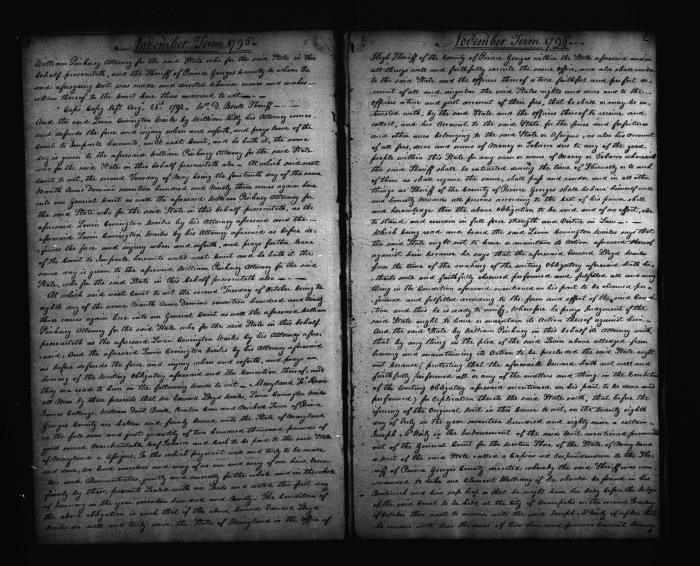 November Term 1795
William Pinkney Attorney for the said State who for the said State in this
behalf prosecuteth, and the Sheriff of Prince Georges County to whom the
said aforegoing Writ was made and directed
Copy left Aug. 25th 1792 Wm. D. Beall Sheriff
And the said Levin Covington Wailes by William Kilty his Attorney comes
and defends the force and injury when and soforth, and prays leave of the
Court to Imparle hereunto, until next Court, and he hath it, the same
day is given to the aforesaid William Pinkney Attorney for the said State
who for the said State in this behalf prosecuteth also. At which said next
Court to wit, the second Tuesday of May being the fourteenth day of the same
Month Anno Domini seventeen hundred and Ninety three comes again here
into our General Court as well the aforesaid William Pinkney Attorney for
the said State who for the said State in this behalf prosecuteth, as the
aforesaid Levin Covington Wailes by his Attorney aforesaid and the
aforesaid Levin Covington Wailes by his Attorney aforesaid as before de-
fends the force and injury when and soforth, and prays further leave
of the Court to Imparle hereunto until next Court and he hath it the
same day is given to the aforesaid William Pinkney Attorney for the said
State, who for the said State in this behalf prosecuteth also
At which said next Court to wit the second Tuesday of October being the
eighth day of the same Month Anno Domini seventeen hundred and Ninety
three comes again here into our General Court as well the aforesaid William
Pinkney Attorney for the said State who for the said State in this behalf
prosecuteth as the aforesaid Levin Covington Wailes by his Attorney afore-
said; And the aforesaid Levin Covington Wailes by his Attorney aforesaid
as before defends the force and injury when and soforth, and prays an
hearing of the Writing Obligatory aforesaid and the Condition thereof, and
they are read to him in the following words to wit Maryland Ss. Know
all Men by these presents that we Edward Lloyd Wailes, Levin Covington Wailes
William
Georges County are holden and firmly bound unto the State of Maryland
in the full sum and just quantity of two hundred thousand pounds of
good sound Merchantable to be paid to the said State
of Maryland or Assigns, To the which payment well and truly to be made
and done, we bind ourselves and every of us our and every of our Heirs, Execu-
tors and Administrators, jointly and severally for the whole and in the whole
firmly by these presents Sealed with our Seals and dated this first day
of January in the year seventeen hundred and Ninety. The Condition of
the above Obligation is such that if the above bound Edward Lloyd
Wailes do well and truly serve the State of Maryland in the office of
November Term 1795
High Sheriff of the County of Prince Georges within the State aforesaid and in
all things well and faithfully execute the same Office, and also shall render
to the said State and the officers thereof a true faithful and perfect ac-
count of all and singular the said States rights and dues and to the
officers a true and just account of their fees, that he shall or may be in-
trusted with, by the said State and the officers thereof to receive and
collect, and his Account to the said State for fines and forfeitures
and other dues belonging to the said State or Assigns, as also his Account
of all fees, dues and sums of Money or Tobacco due to any of the good
people within this State for any sum or sums of Money or Tobacco whereof
the said Sheriff shall be entrusted during the time of Sheriffalty, or to such
of them as shall require the same, shall pass and render, and in all other
things as Sheriff of the County of Prince Georges shall behave himself well
and honestly towards all persons according to the best of his power, skill
and knowledge; then the above Obligation to be void and of no effect, else
to stand and remain in full force strength and virtue in Law
Which being read and heard the said Levin Covington Wailes says that
the said State ought not to have or maintain its Action aforesaid thereof
against him because he says that the aforesaid Edward Lloyd Wailes
from the time of the making of the writing Obligatory aforesaid hath hi-
therto well and faithfully observed performed and fulfilled all and every
thing in the Condition aforesaid mentioned on his part to be observed per-
formed and fulfilled according to the form and effect of the said Condi-
tion and this he is ready to verify, wherefore he prays Judgment if the
said State ought to have or maintain its Action thereof against him
And the said State by William Pinkney in this behalf its Attorney saith
that by any thing in the plea of the said Levin above alledged from
having and maintaining its Action to be precluded the said State ought
not because, protesting that the aforesaid Edward hath not well and
faithfully performed all or any of the matters and things in the Condition
of the writing Obligatory aforesaid mentioned on his part to be done and
performed; for Replication thereto the said State saith, that before the
issuing of the Original Writ in this Cause to wit, on the twenty eighth
day of July in the year seventeen hundred and ninety a certain
Joseph McNeily
out of the General Court for the Western Shore of the State of Maryland
a Writ of the said State called a Capias ad respondendum to the She-
riff of Prince Georges County directed whereby the said Sheriff was com-
manded to take one Clement Holliday if he should be found in his
Bailiwick and him safe keep so that he might have his body before the Judges
of the said Court to be held at the City of Annapolis on the second Tuesday
of October then next to answer unto the said Joseph McNeily
he render unto him the sum of two hundred pounds Current Money